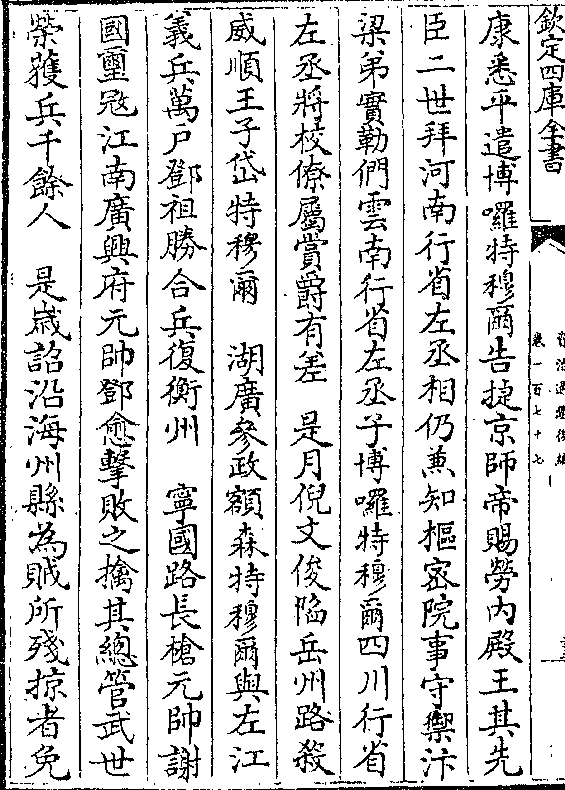 欽定四庫全書
資治通鑑後編
卷一百七十七
康悉平遣博囉特穆爾告捷京師帝賜勞内殿王其先
臣二世拜河南行省左丞相仍兼知樞密院事守禦汴
梁弟實勒們雲南行省左丞子博囉特穆爾四川行省
左丞將校僚屬賞爵有差　是月倪文俊陷岳州路殺
威順王子岱特穆爾　湖廣參政額森特穆爾與左江
義兵萬戸鄧祖勝合兵復衡州　寧國路長槍元帥謝
國璽冦江南廣興府元帥鄧愈擊敗之擒其總管武世
榮獲兵千餘人　是嵗詔沿海州縣為賊所殘掠者免